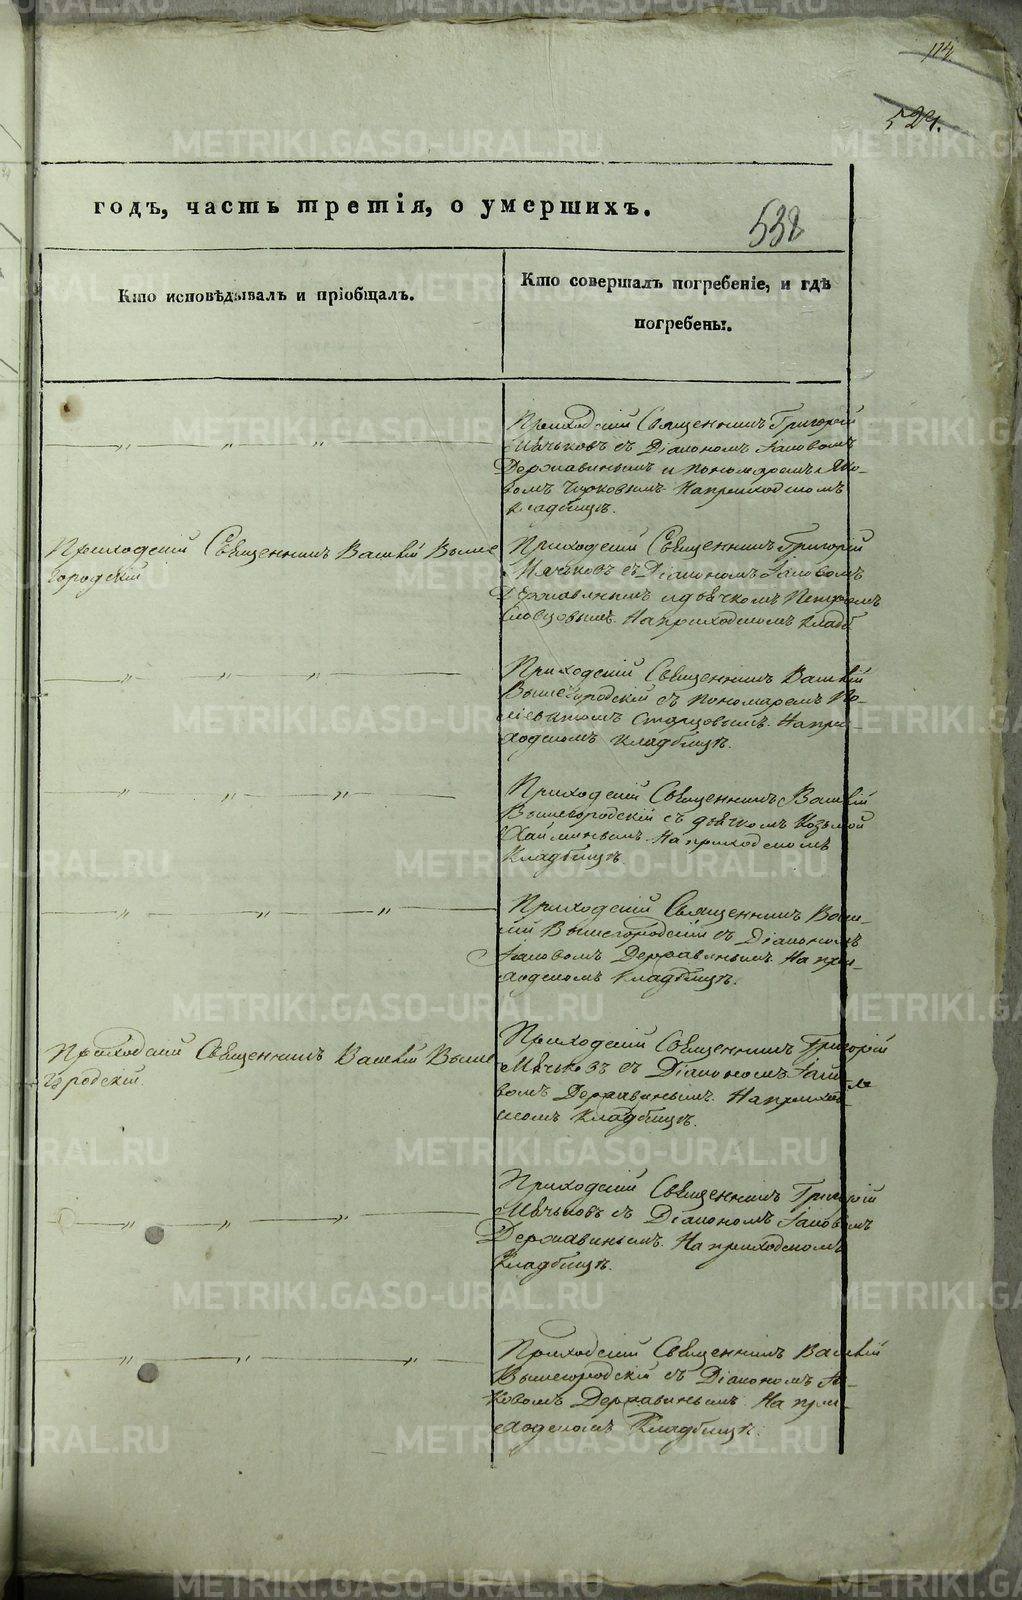 114
524.
годъ, часть третія, о умершихъ.
538
Кто исповѣдывалъ и пріобщалъ.
Кто совершалъ погребеніе, и гдѣ
погребены.
— „ — „ — „ —
Приходскій Священникъ Григорій
Мячьковъ съ Діакономъ Іаковомъ
Державинымъ и Пономаремъ Яко-
вомъ На приходскомъ
кладбищѣ.
Приходскій Священникъ Василій Выше
городскій
Приходскій Священникъ Григорій
Мячьковъ съ Діакономъ Іаковомъ
Державинымъ и дьячкомъ Петромъ
Словцовымъ. На приходскомъ кладб
— „ — „ — „ —
Приходскій Священникъ Василій
Вышегородскій съ пономаремъ
Старцовымъ. На при-
ходскомъ кладбищѣ.
— „ — „ — „ —
Приходскій Священникъ Василій
Вышегородскій съ дьячкомъ Козьмой
На приходскомъ
кладбищѣ.
— „ — „ — „ —
Приходскій Священникъ Васи-
лій Вышегородскій съ Діакономъ
Іаковомъ Державинымъ. На при-
ходскомъ кладбищѣ.
Приходскій Священникъ Василій Выше
городскій.
Приходскій Священникъ Григорій
Мячьковъ съ Діакономъ Іако-
вомъ Державинымъ. На приход-
скомъ кладбищѣ.
— „ — „ — „ —
Приходскій Священникъ Григорій
Мячьковъ съ Діакономъ Іаковомъ
Державинымъ. На приходскомъ
кладбищѣ.
— „ — „ — „ —
Приходскій Священникъ Василій
Вышегородскій съ Діакономъ Іа-
ковомъ Державинымъ. На при-
ходскомъ кладбищѣ.
METRIKI.GASO-URAL.RU